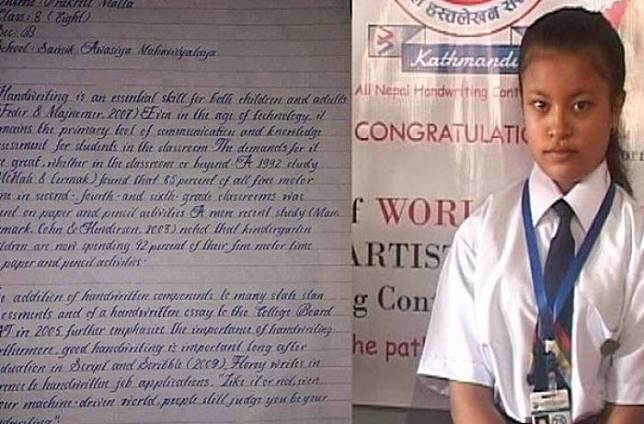 Malla
Class: 8 (Eight)
Sec: B
School: Sainik Awasiya Mahavidyalaya
Handwriting is an essential skill for both children and adults
(Feder & Majnemer, 2007) Even in the age of technology, it
mains the primary tool of communication and knowledge
sessment for students in the classroom. The demands for it
e great, whether in the classroom or beyond. A 1992 study
McHale & Cermak) found that 85 percent of all fine motor
me in second- fourth- and sixth-grade classrooms was
ent on paper and pencil activities. A more recent study (Marr
ermak, Cohn & Henderson, 2003) noted that kindergarten
ldren are now spending 42 percent of their fine motor time
paper and pencil activities.
addition of handwritten components to many state stan
essments and of a handwritten essay to the College Board
AT in 2005 further emphasize the importance of handwriting
rthermore, good handwriting is important long after
duation in Script and Scribble (2009), Florey writes in
rence to handwritten job applications, "Like it or not, even
our machine-driven world, people still judge you by your
dwriting".
हस्तलेखन
Kathmandu
All Nepal Handwriting Cont
CONGRATULATIO
f WORL
ARTIS
g Con
he pat